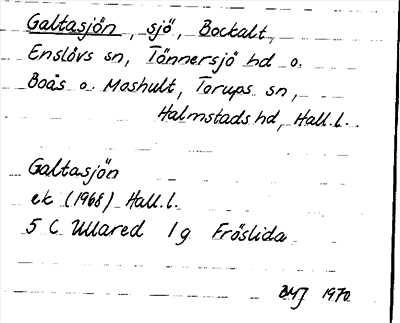 Galtasjön, sjö, Bockalt,
Enslövs sn, Tönnersjö hd o.
Boås o. Moshult, Torups sn,
Halmstads hd, Hall.l.
Galtasjön
ek (1968) Hall.l.
5 C Ullared 1g Fröslida
BMJ 1970